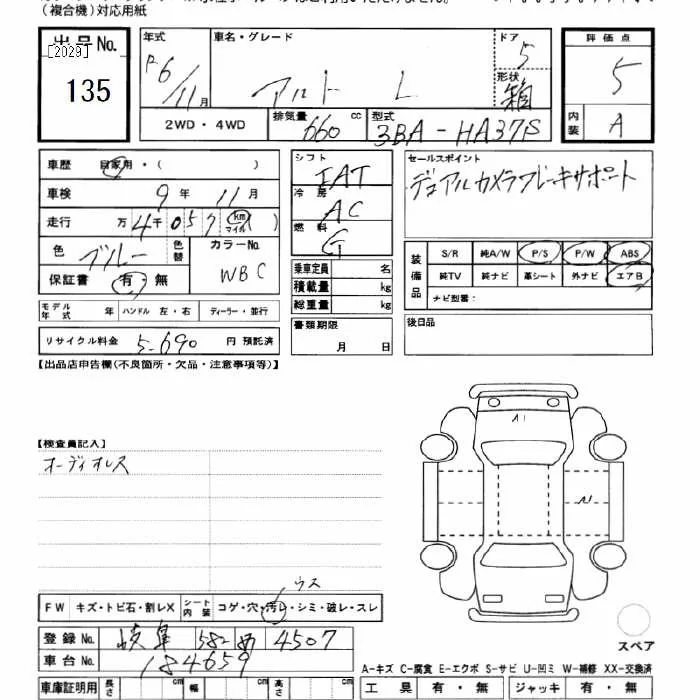 (複合機)対応用紙
出品No. [2029] 135
年式 R6/11月 車名・グレード アルト L ドア 5 形状 箱
2WD・4WD 排気量 660 cc 型式 3BA-HA37S
評価点 5
内装 A
車歴 自家用・( )
車検 9年 11月
走行 万 4千 057 km マイル
色 ブルー 色替 カラーNo. WBC
保証書 有・無
シフト IAT
冷房 AC
燃料 G
乗車定員 名
積載量 kg
総重量 kg
書類期限 月 日
セールスポイント
デュアルカメラブレーキサポート
装備品 S/R 純A/W P/S P/W ABS
純TV 純ナビ 革シート 外ナビ エアB
ナビ型番:
後日品
モデル年式 年 ハンドル 左・右 ディーラー・並行
リサイクル料金 5.690 円 預託済
【出品店申告欄(不良箇所・欠品・注意事項等)】
A1
A1
【検査員記入】
オーディオレス
ウス
FW キズ・トビ石・割レX シート内装 コゲ・穴・汚レ・シミ・破レ・スレ
登録No. 岐阜 582 4507
車台No. 184659
スペア
A-キズ C-腐食 E-エクボ S-サビ U-凹ミ W-補修 XX-交換済
車庫証明用 長さ cm 幅 cm 高さ cm 工具 有・無 ジャッキ 有・無